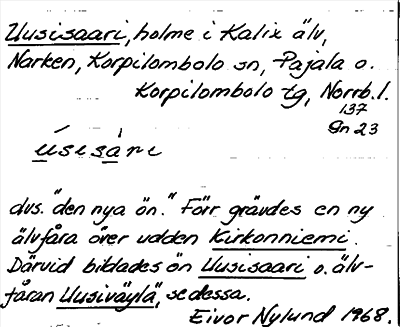 Uusisaari, holme i Kalix älv,
Narken, Korpilombolo sn, Pajala o.
Korpilombolo tg, Norrb. l.
137
Gn 23
úsisàri
dvs. "den nya ön." Förr grävdes en ny
älvfåra över udden Kirkonniemi.
Därvid bildades ön Uusisaari o. älv-
fåran Uusiväylä, se dessa.
Eivor Nylund 1968.